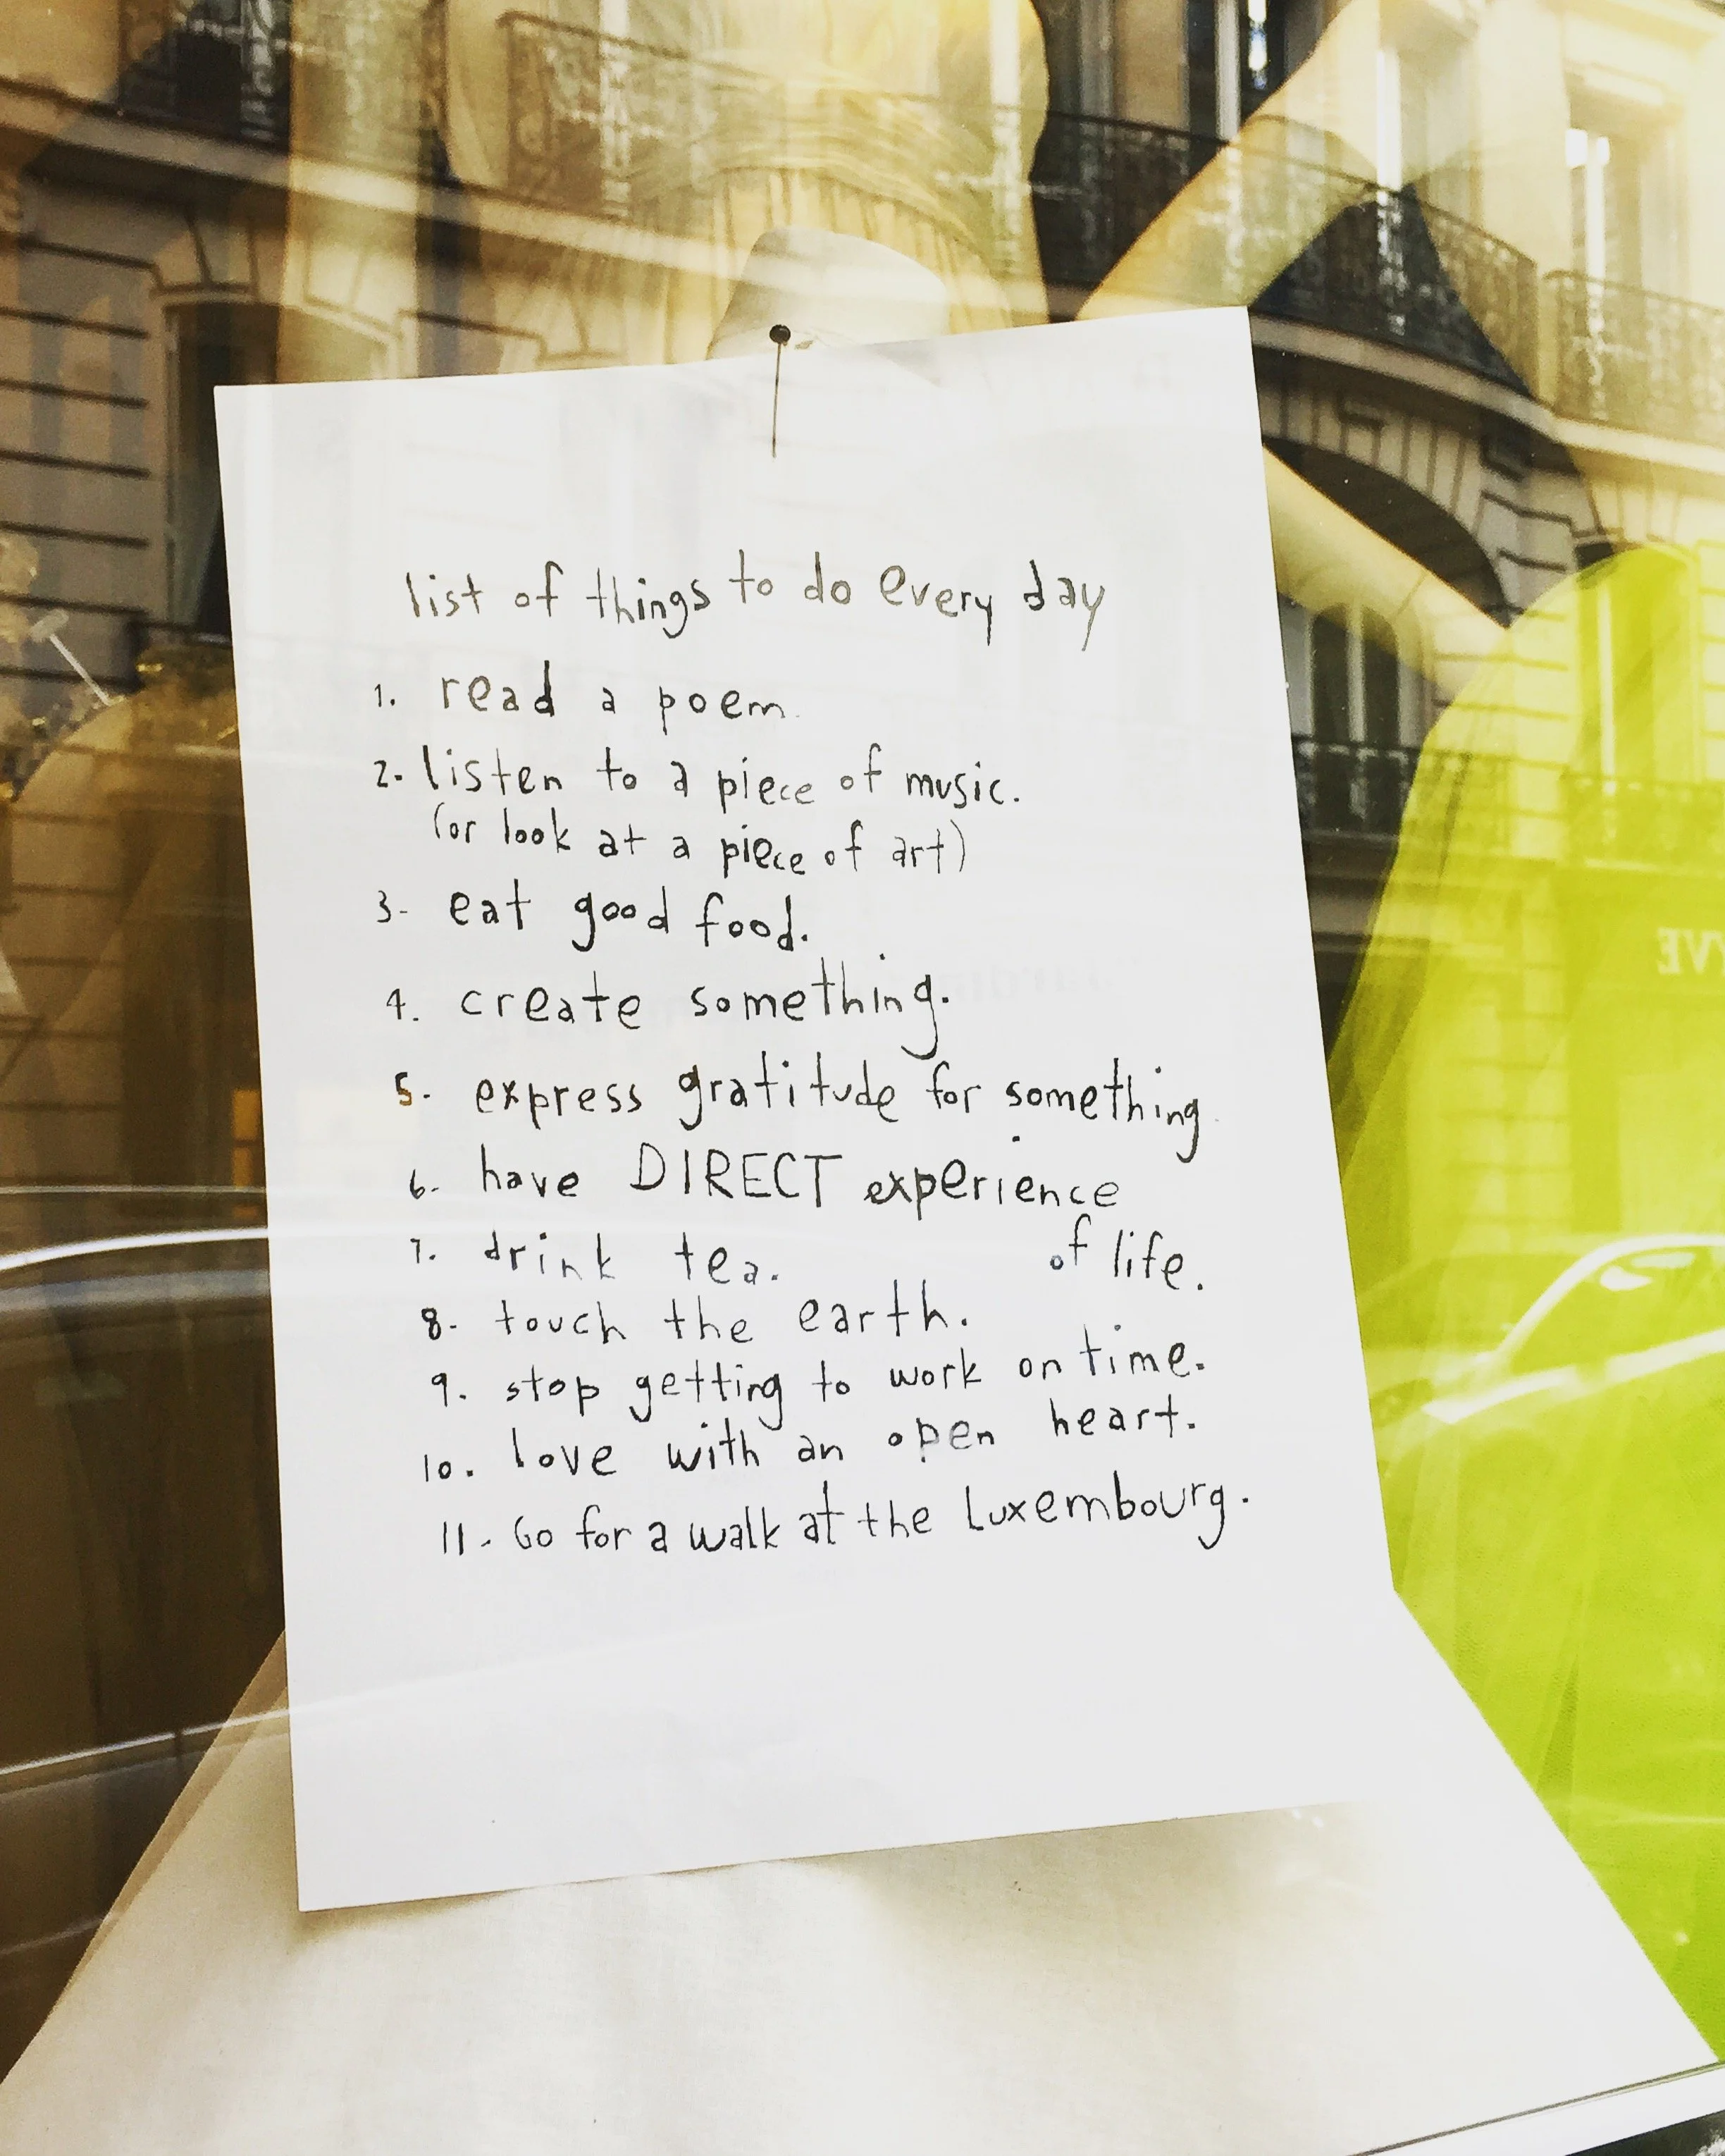 list of things to do every day
1. read a poem.
2. listen to a piece of music.
(or look at a piece of art)
3- eat good food.
4. create something.
5- express gratitude for something.
6- have DIRECT experience
of life.
7. drink tea.
8- touch the earth.
9. stop getting to work on time.
10. love with an open heart.
11- Go for a walk at the Luxembourg.